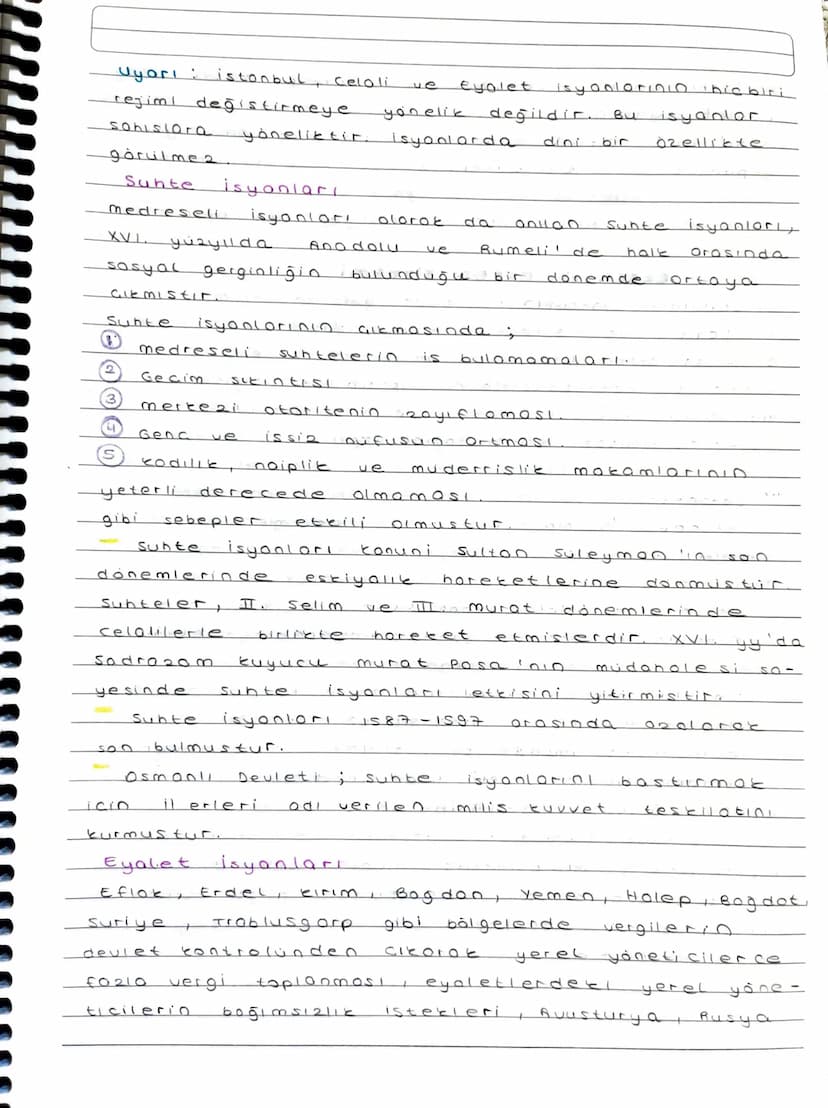 Uyarı : istanbul, Celali ve Eyalet isyanlarının hiçbiri
rejimi değiştirmeye yönelik değildir. Bu isyanlar
sahıslara yöneliktir. isyanlarda dini bir özellikte
görülmez.
Suhte isyanları
medreseli isyanları olarak da anılan suhte isyanları,
XVI. yüzyılda Anadolu ve Rumeli'de halk arasında
sosyal gerginliğin bulunduğu bir dönemde ortaya
çıkmıstır.
Suhte isyanlarının çıkmasında ;
1 medreseli suhtelerin is bulamamaları.
2 Gecim sıkıntısı
3 merkezi otoritenin zayıflaması.
4 Genc ve issiz nüfusun artması.
5 kadılık, naiplik ve muderrislik makamlarının
yeterli derecede olmaması.
gibi sebepler etkili olmustur.
- suhte isyanları kanuni sultan süleyman'ın son
dönemlerinde eskiyalık hareketlerine dönmüstür.
suhteler, II. selim ve III. murat dönemlerinde
celalilerle birlikte hareket etmislerdir. XVI. yy'da
sadrazam kuyucu murat pasa'nın müdahalesi sa-
yesinde suhte isyanları etkisini yitirmistir.
- suhte isyanları 1587-1597 arasında azalarak
son bulmustur.
- Osmanlı Devleti ; suhte isyanlarını bastırmak
icin il erleri adı verilen milis kuvvet teskilatını
kurmustur.
Eyalet isyanları
Eflak, Erdel, kırım, Bogdan, Yemen, Halep, Bagdat,
suriye, Trablusgarp gibi bölgelerde vergilerin
devlet kontrolünden cıkarak yerel yöneticilerce
fazla vergi toplanması, eyaletlerdeki yerel yöne-
ticilerin bağımsızlık istekleri, Avusturya, Rusya